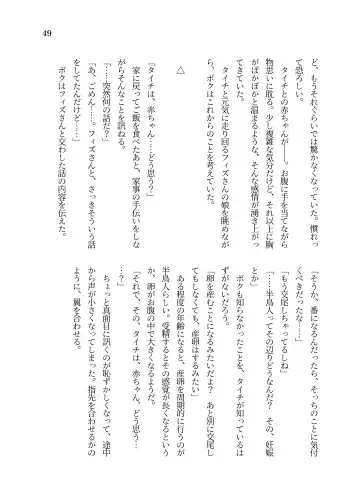 49
ど、もうそれぐらいでは驚かなくなっていた。慣れっ
て恐ろしい。
　タイチとの赤ちゃんが――。お腹に手を当てながら
物思いに耽る。少し複雑な気分だけど、それ以上に胸
がぽかぽかと温まるような、そんな感情が湧き上がっ
てきていた。
　タイチと元気に走り回るフィズさんの娘を眺めなが
ら、ボクはこれからのことを考えていた。
△
「タイチは、赤ちゃん……どう思う？」
　家に戻ってご飯を食べたあと、家事の手伝いをしな
がらそんなことを訊ねる。
「……突然何の話だ？」
「あ、ごめん……。フィズさんと、さっきそういう話
をしてたんだけど……」
　ボクはフィズさんと交わした話の内容を伝えた。
「そうか、番になるんだったら、そっちのことに気付
くべきだったな……」
「もう交尾しちゃってるしね」
「……半鳥人ってその辺りどうなんだ？　その、妊娠
とか」
　ボクも知らなかったことを、タイチが知っているは
ずがないだろう。
「卵を産むことになるみたいだよ？　あと別に交尾し
てもしなくても、産卵はするみたい」
　ある程度の年齢になると、産卵を周期的に行うのが
半鳥人らしい。受精するとその感覚が長くなるという
か、卵がお腹の中で大きくなるようだ。
「それで、その、タイチは、赤ちゃん、どう思う…
…？」
　ちょっと真面目に訊くのが恥ずかしくなって、途中
から声が小さくなってしまった。指先を合わせるかの
ように、翼を合わせる。